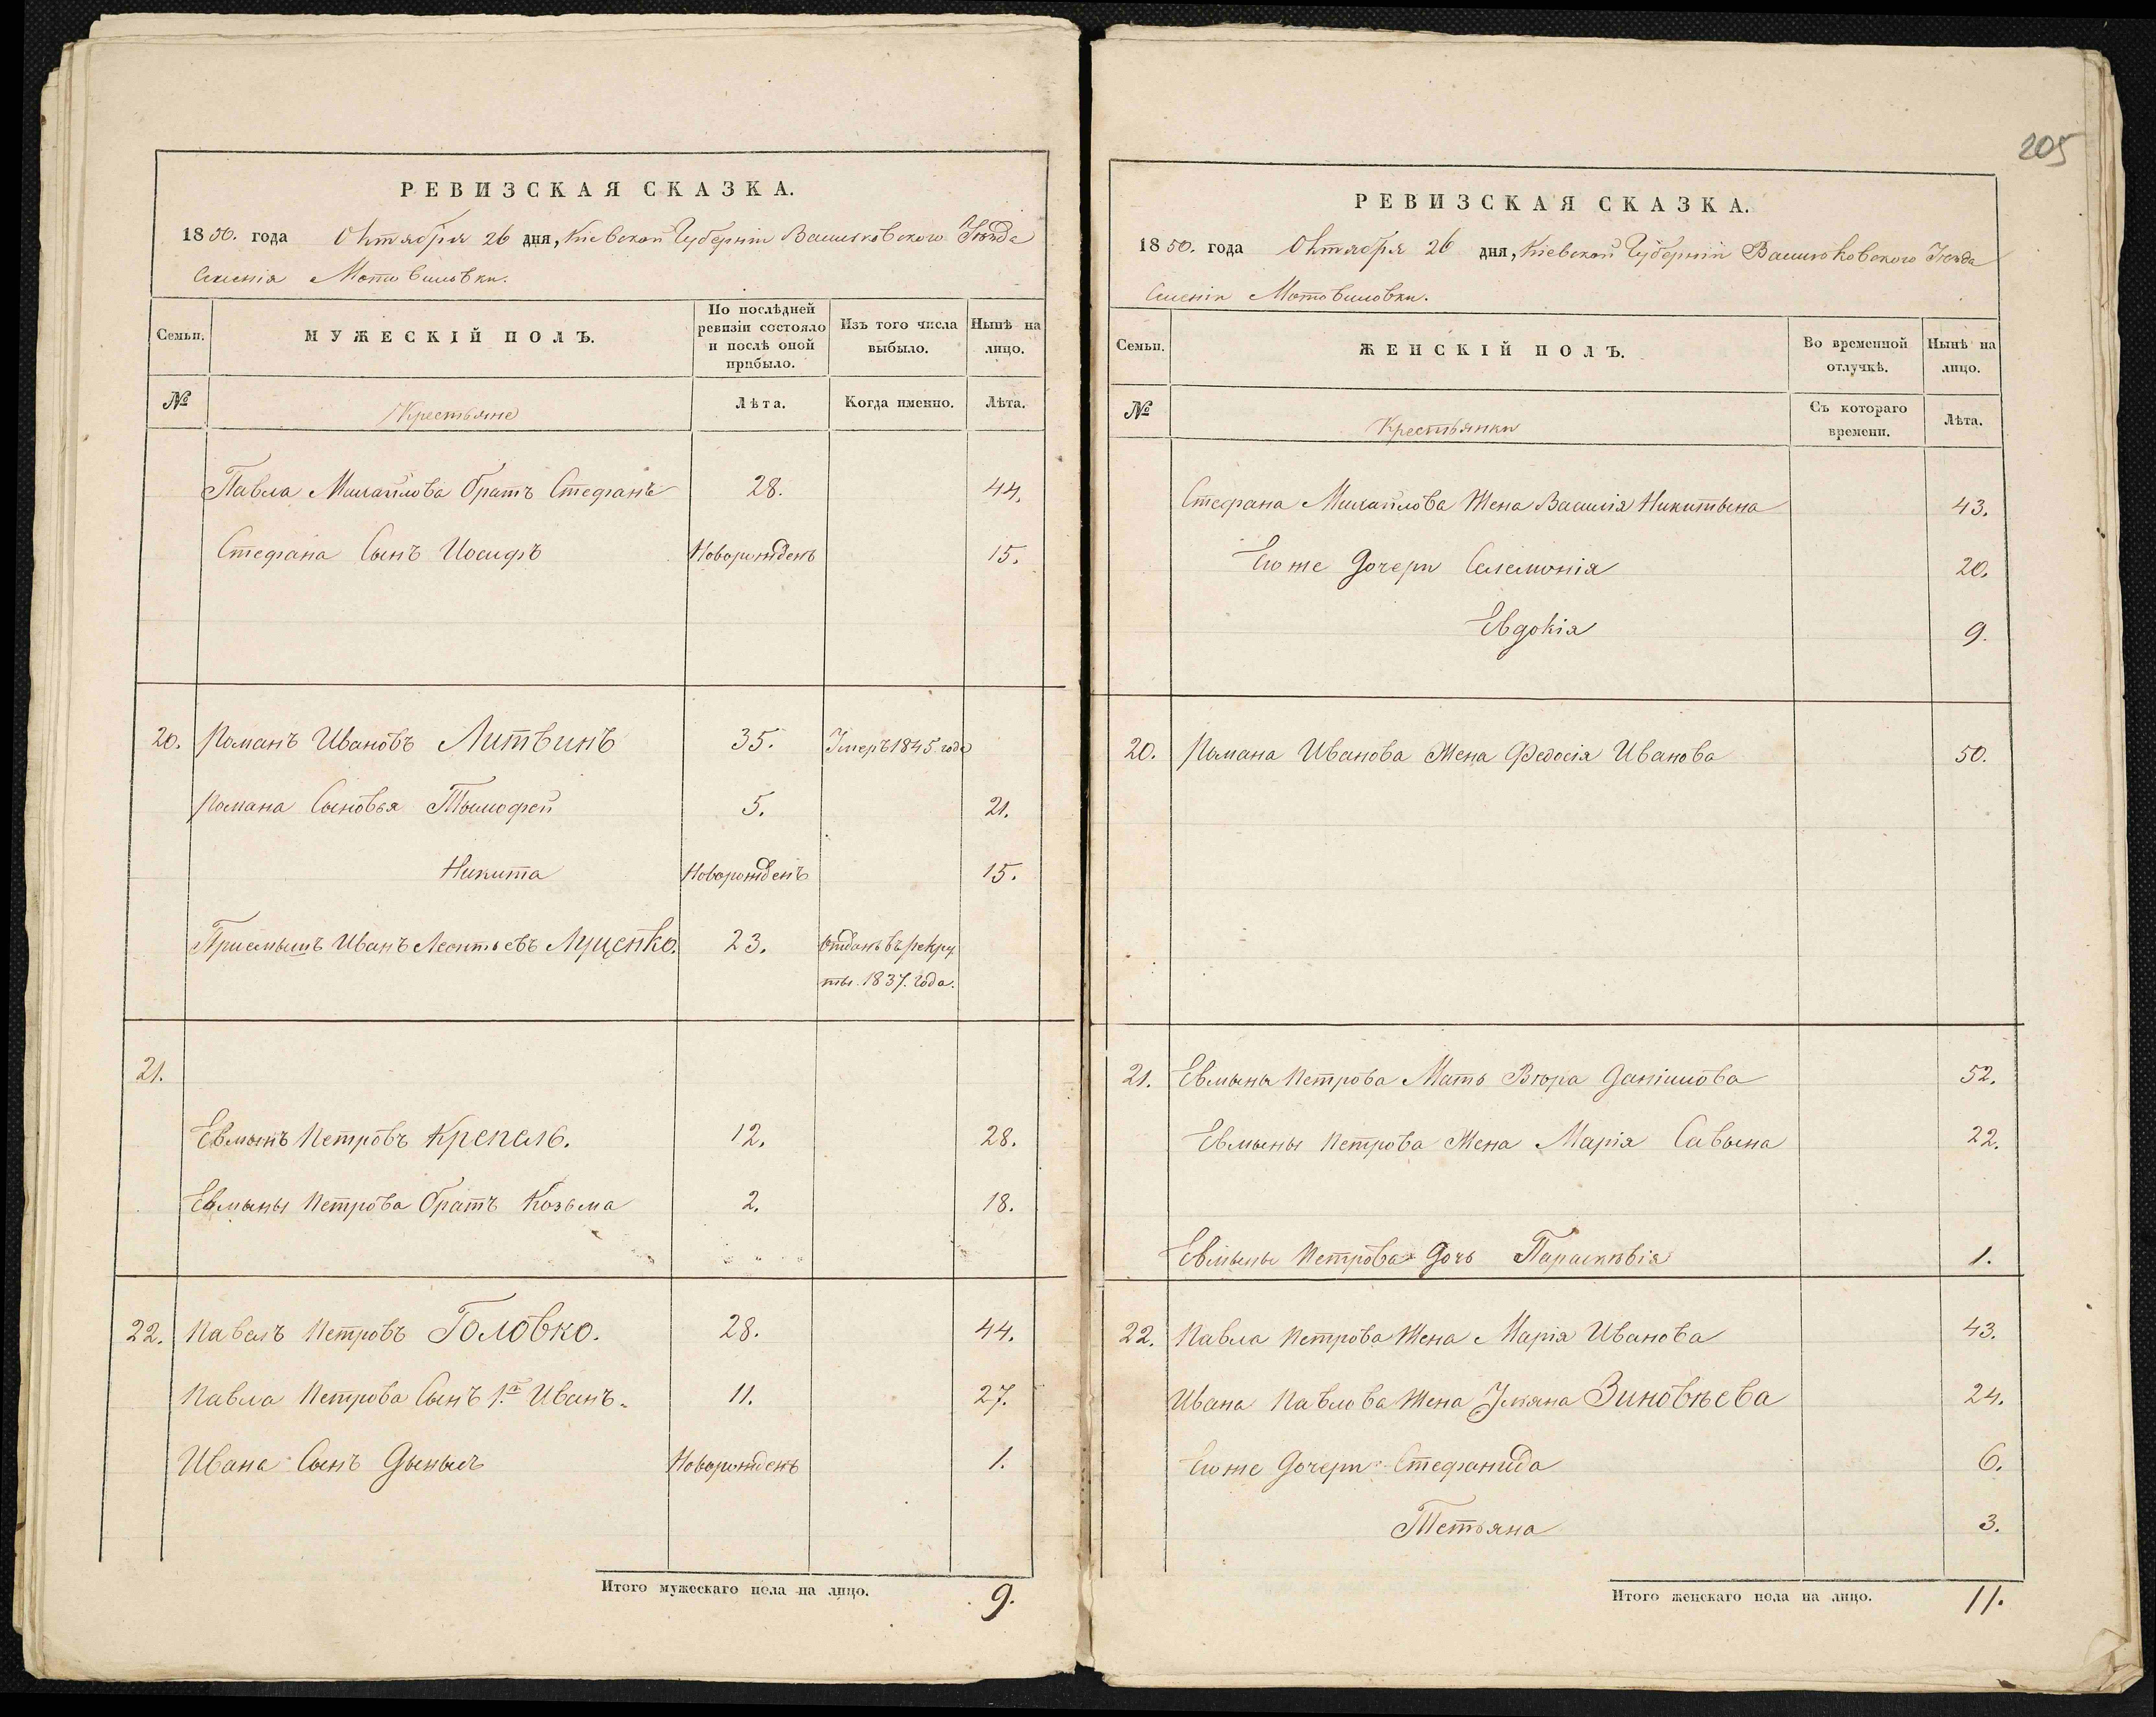 РЕВИЗСКАЯ СКАЗКА.
1850. года Октября 26 дня, Кіевской Губерніи Васильковского Уѣзда
Селенія Мотовиловки.
Семьи. МУЖЕСКІЙ ПОЛЪ. По послѣдней ревизіи состояло и послѣ оной прибыло. Изъ того числа выбыло. Нынѣ на лицо.
№ Крестьяне Лѣта. Когда именно. Лѣта.
Павла Михайлова братъ Стефанъ 28. 44.
Стефана Сынъ Иосифъ Новорожденъ 15.
20. Романъ Ивановъ Литвинъ 35. Умеръ 1845 года
Романа Сыновья Тымофей 5. 21.
Никита Новорожденъ 15.
Приемышъ Иванъ Леонтьевъ Луценко. 23. Отданъ въ рекру
ты. 1837. года.
21.
Евмынъ Петровъ Крепель. 12. 28.
Евмыны Петрова братъ Козьма 2. 18.
22. Павелъ Петровъ Головко. 28. 44.
Павла Петрова Сынъ 1.й Иванъ. 11. 27.
Ивана Сынъ Дыныс Новорожденъ 1.
Итого мужескаго пола на лицо. 9.
205
РЕВИЗСКАЯ СКАЗКА.
1850. года Октября 26 дня, Кіевской Губерніи Васильковского Уѣзда
Селеніи Мотовиловки.
Семьи. ЖЕНСКІЙ ПОЛЪ. Во временной отлучкѣ. Нынѣ на лицо.
№ Крестьянки Съ котораго времени. Лѣта.
Стефана Михайлова Жена Василія Никитына 43.
Его же Дочери Селемонія 20.
Евдокія 9.
20. Романа Иванова Жена Федосія Иванова 50.
21. Евмыны Петрова Мать Вѣра Даніилова 52.
Евмыны Петрова Жена Марія Савына 22.
Евмыны Петрова Дочь Параскѣвія 1.
22. Павла Петрова Жена Марія Иванова 43.
Ивана Павлова Жена Ульяна Зиновѣева 24.
Его же Дочери Стефанида 6.
Тетьяна 3.
Итого женскаго пола на лицо. 11.